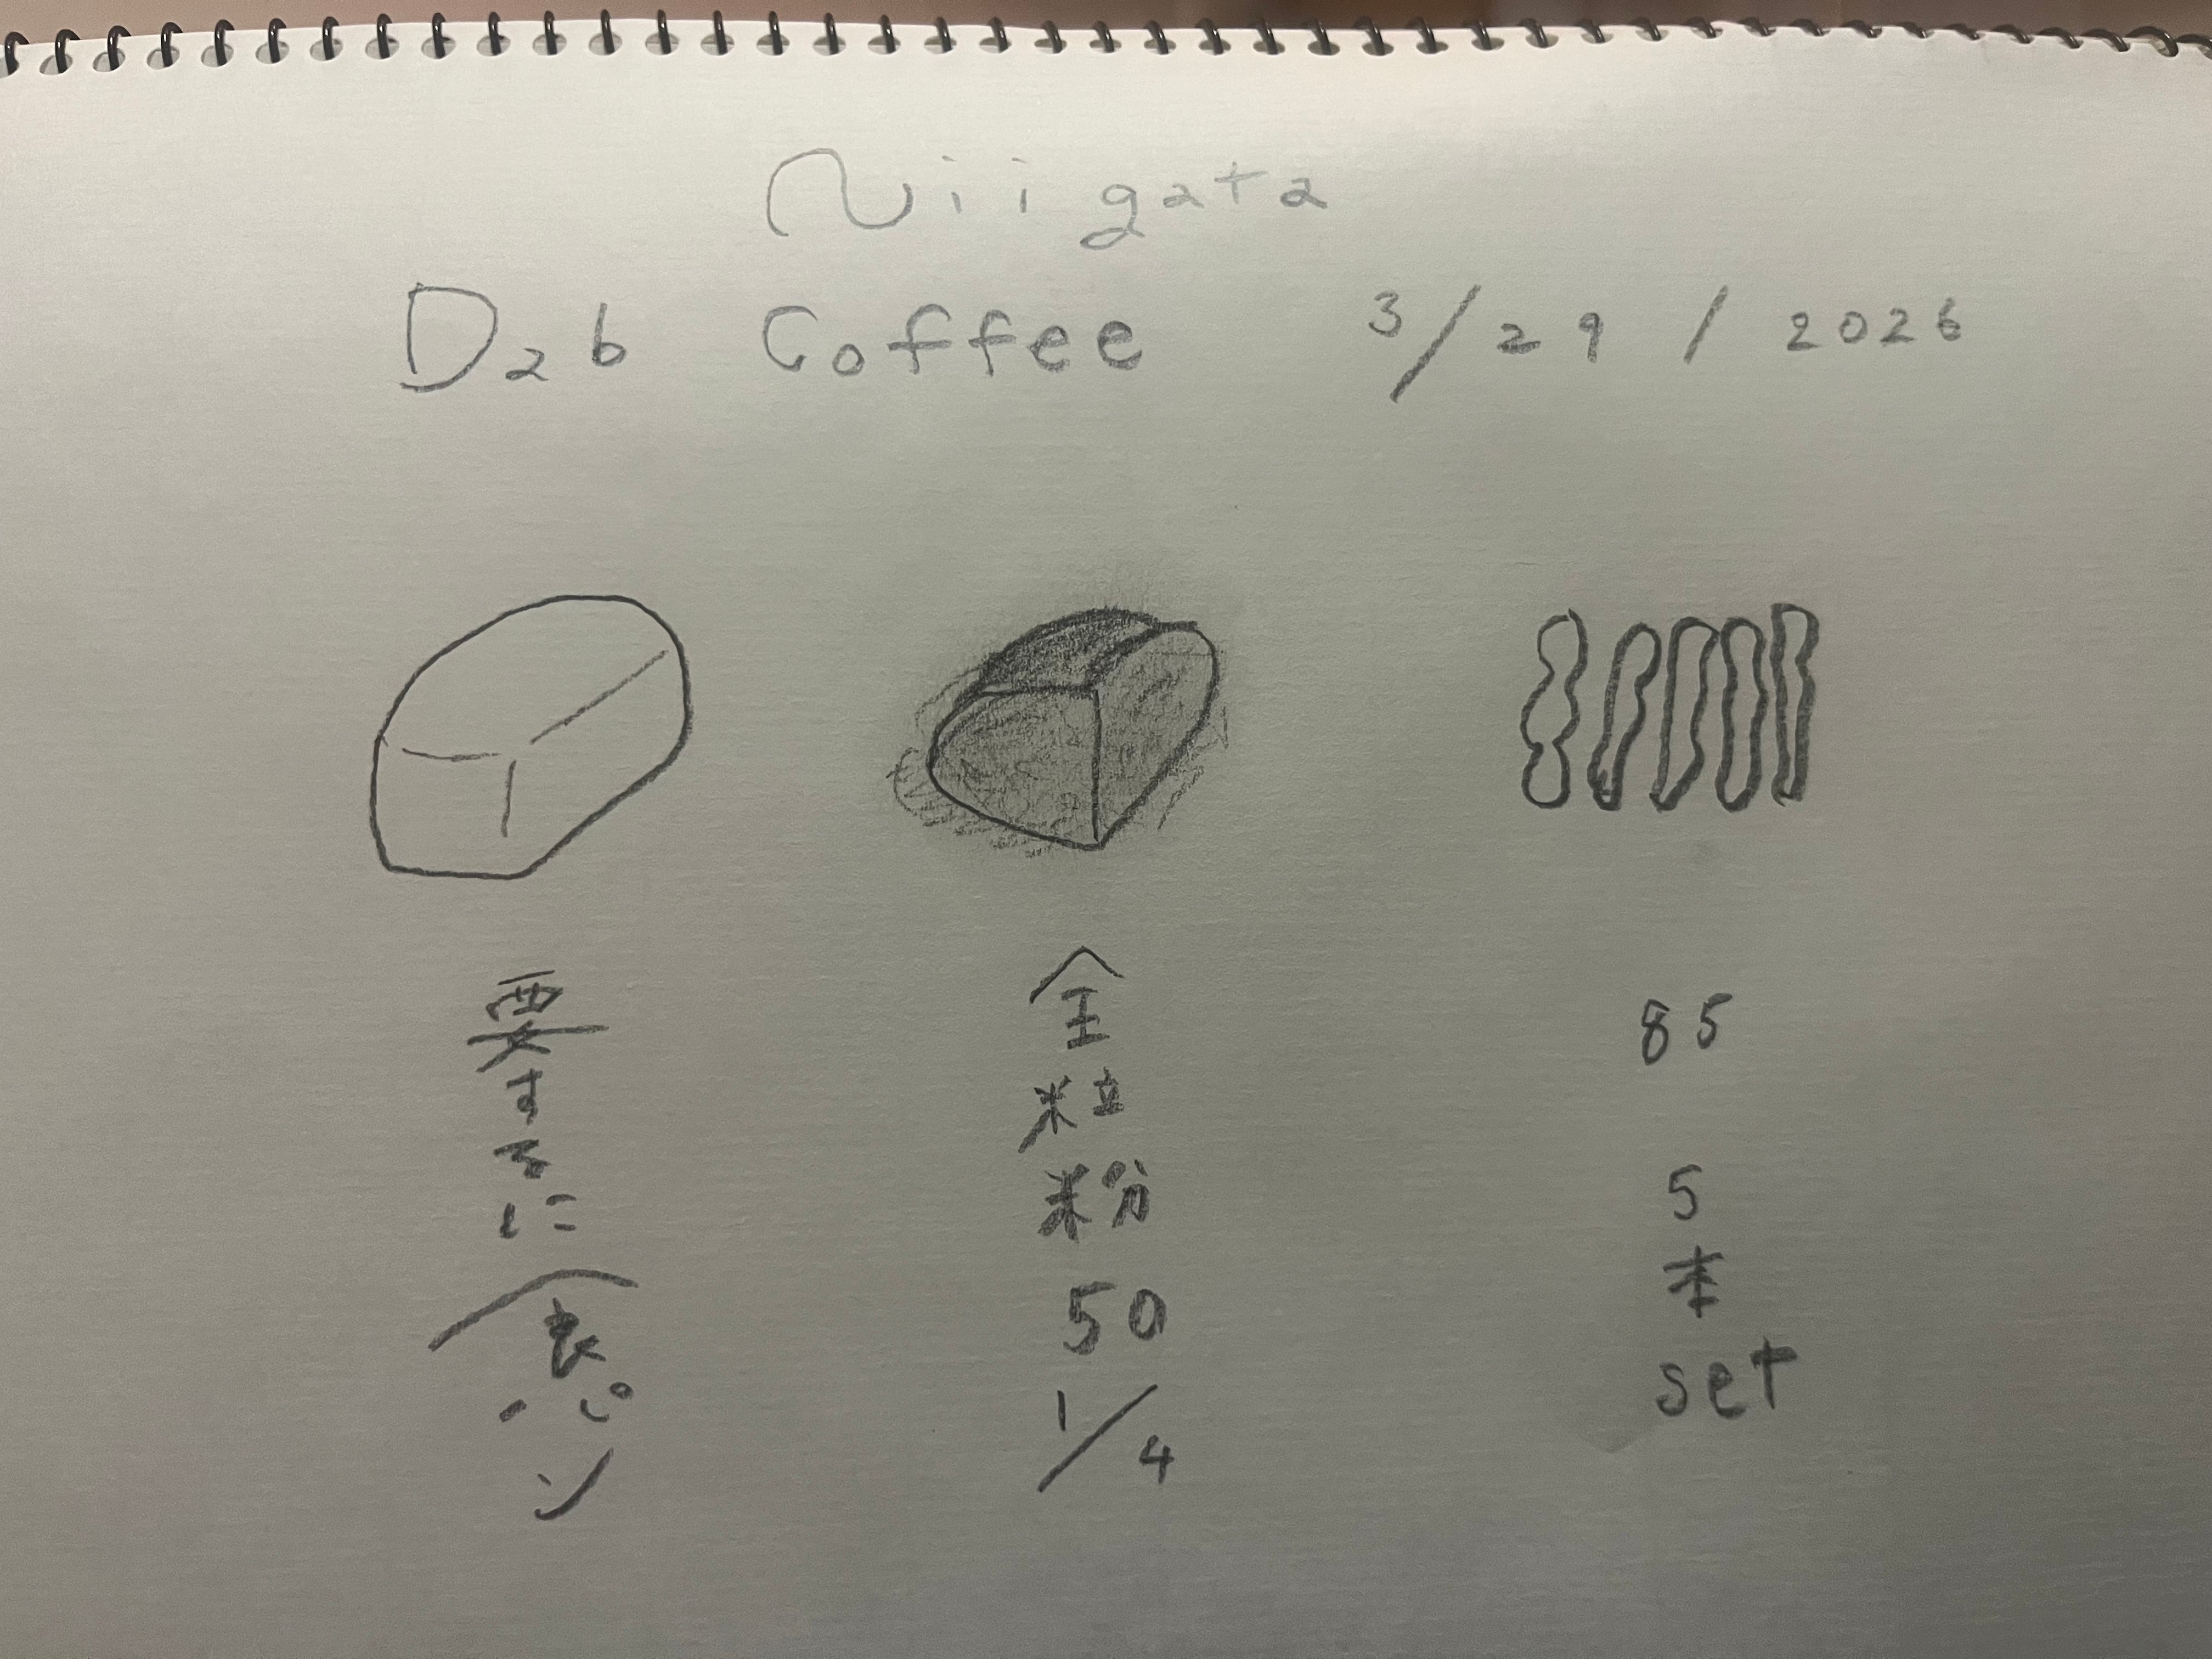 Niigata
Dab Coffee 3/29/2026
要するに食パン
全粒粉50 1/4
85 5本set